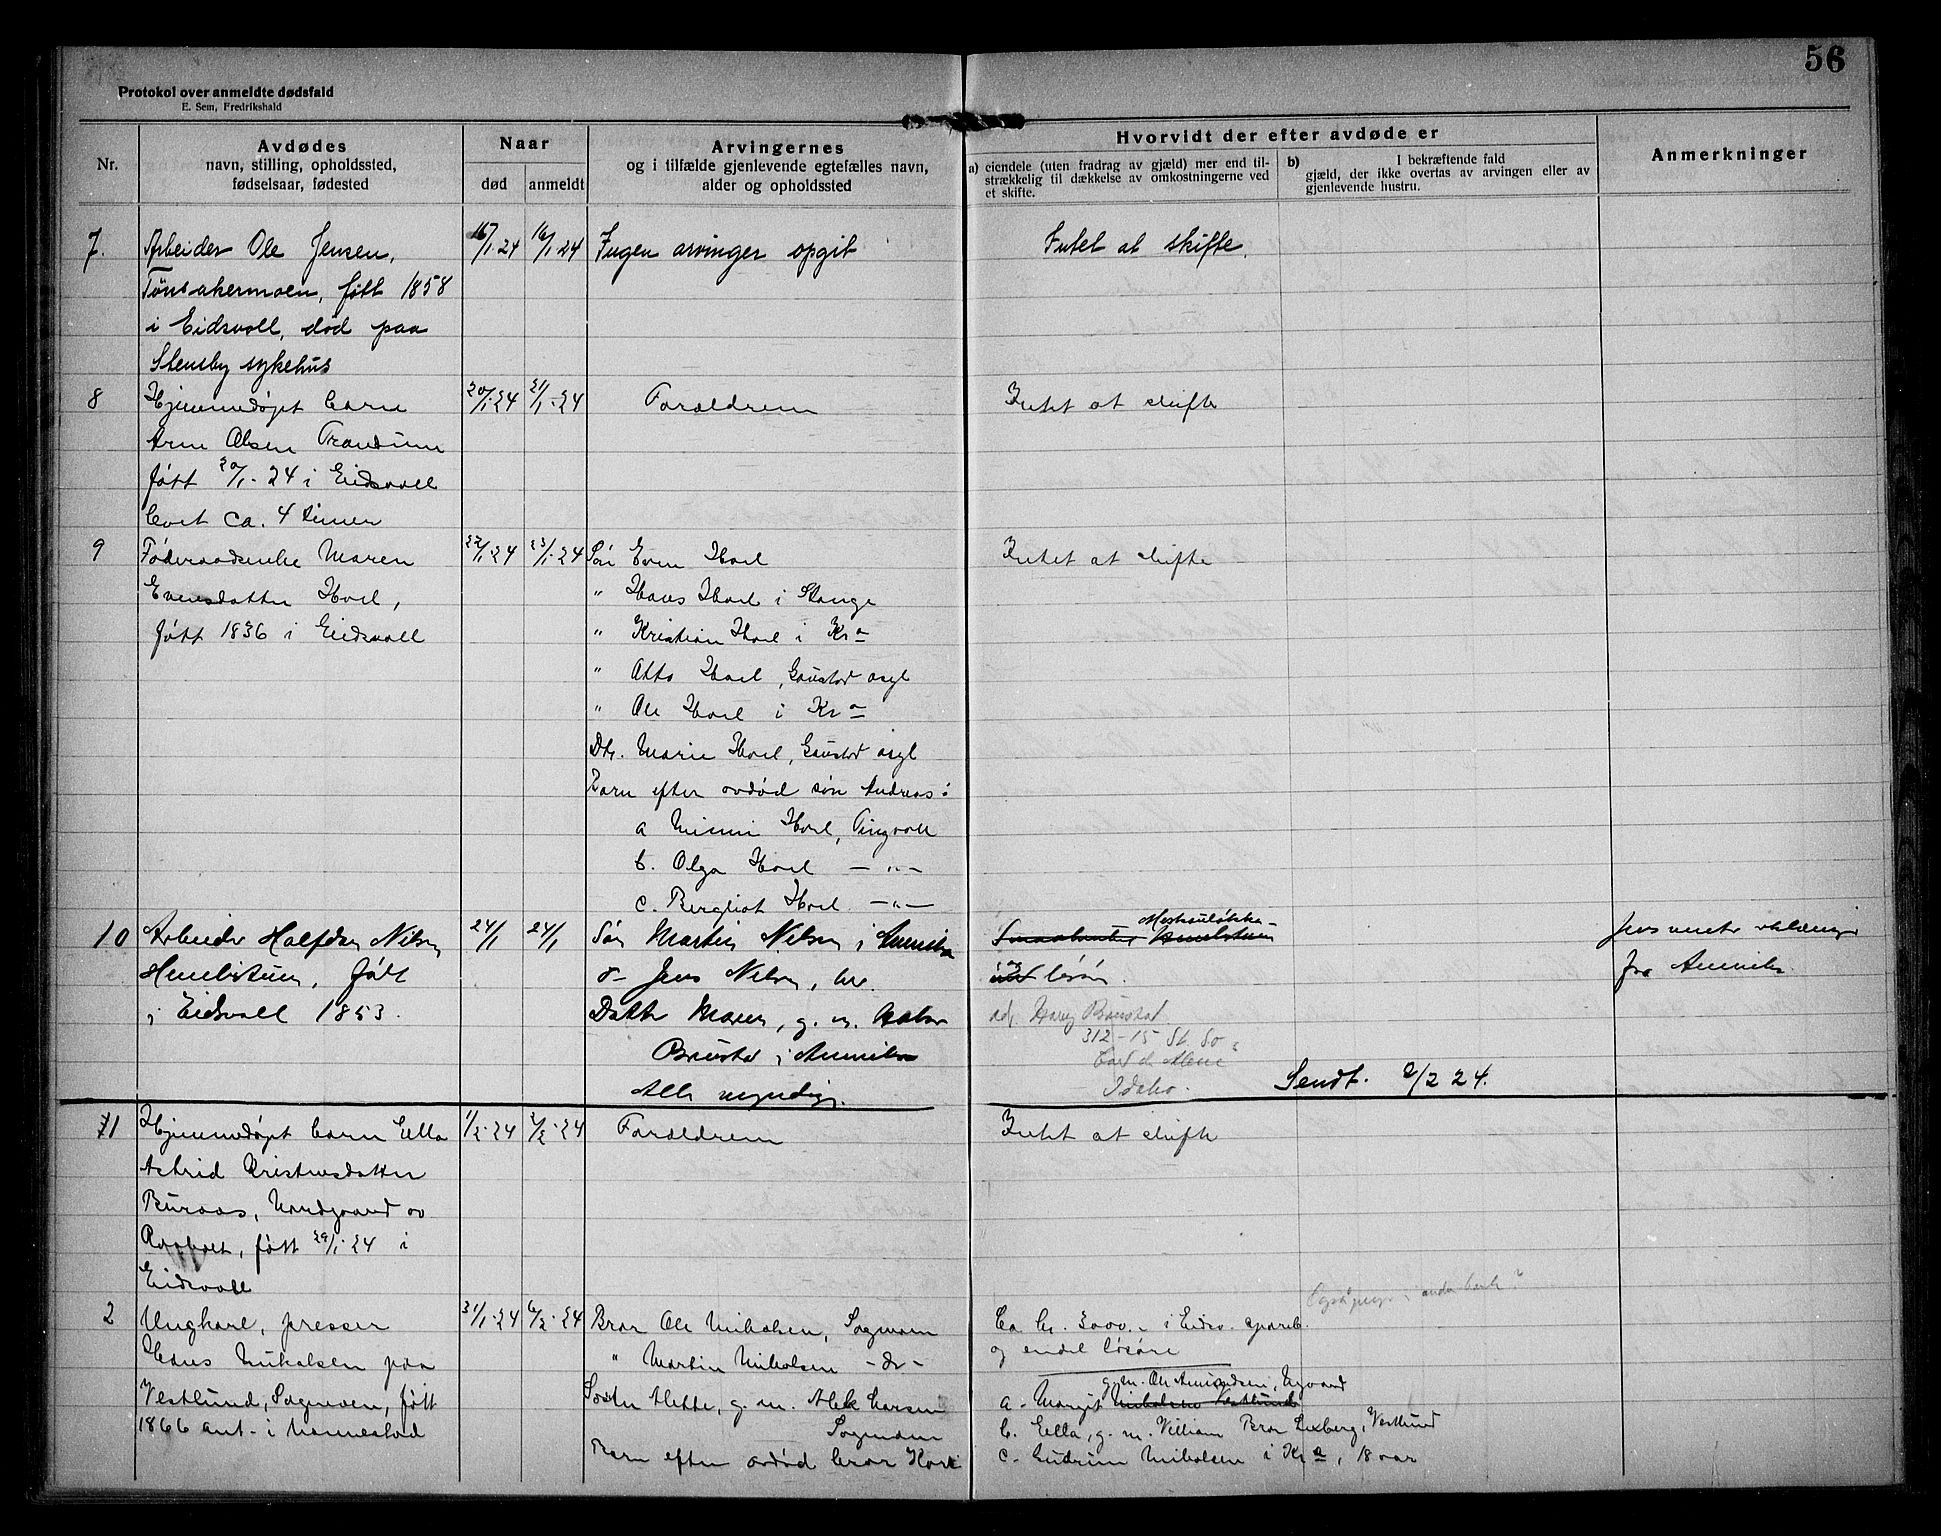 56
Protokol over anmeldte dødsfald
E. Sem, Fredrikshald
Nr.
Avdødes
navn, stilling, opholdssted,
fødselsaar, fødested
Naar
død
anmeldt
Arvingernes
og i tilfælde gjenlevende egtefælles navn,
alder og opholdssted
Hvorvidt der efter avdøde er
a) eiendele (uten fradrag av gjæld) mer end til-
strækkelig til dækkelse av omkostningerne ved
et skifte.
b) I bekræftende fald
gjæld, der ikke overtas av arvingen eller av
gjenlevende hustru.
Anmerkninger
7. Arbeider Ole Jensen, 16/1 24 16/1 24 Ingen arvinger opgit Intet at skifte.
Tönsakermoen, født 1858
i Eidsvoll, död paa
Stensby sykehus
8 Hjemmedøpt barn 20/1-24 21/1-24 Forældrene Intet at skifte
Arne Olsen Trandum
født 20/1-24 i Eidsvoll
levet ca. 4 timer
9 Føderaadsenke Maren 22/1-24 23/1-24 Søn Even Hoel Intet at skifte
Evensdatter Hoel, " Hans Hoel i Stange
født 1836 i Eidsvoll " Kristian Hoel i Kra
" Otto Hoel, Gaustad asyl
" Ole Hoel i Kra
Dtr. Marie Hoel, Gaustad asyl
Barn efter avdød søn Andreas:
a Minni Hoel, Tingvoll
b. Olga Hoel — " —
c. Bergliot Hoel — " —
10 Arbeider Halfdan Nilsen 24/1 24/1 Søn Martin Nilsen i Amerika
Hemlistuen, født o- Jens Nilsen, her. løsøre.
i Eidsvoll 1853. Datter Maren, g. m.
Braastad i Amerika
Alle myndige.
fra Amerika
312-15 St. So
Idaho.
Sendt. 2/2 24.
11 Hjemmedøpt barn Ella 1/2-24 2/2-24 Forældrene Intet at skifte
Astrid Kristensdatter
Buraas, Nordgaard av
født 29/1-24 i
Eidsvoll
2 Ungkarl, presser 31/1-24 6/2-24 Bror Ole Nikolsen, Sagmoen Ca. kr. 3000.- i Eidsv. spareb.
Hans Nikolsen paa " Martin Nikolsen -do- og endel løsøre
Vestlund, Sagmoen, født Søster Mette, g. m. Larsen
Sagmoen
1866 ant. i Nannestad
Barn efter avdød bror
g. m. Ole Amundsen,
a- Margit Nikolsen Vestlund
b. Ella, g. m. William Bror Vestlund
c- Gudrun Nikolsen i Kra, 18 aar